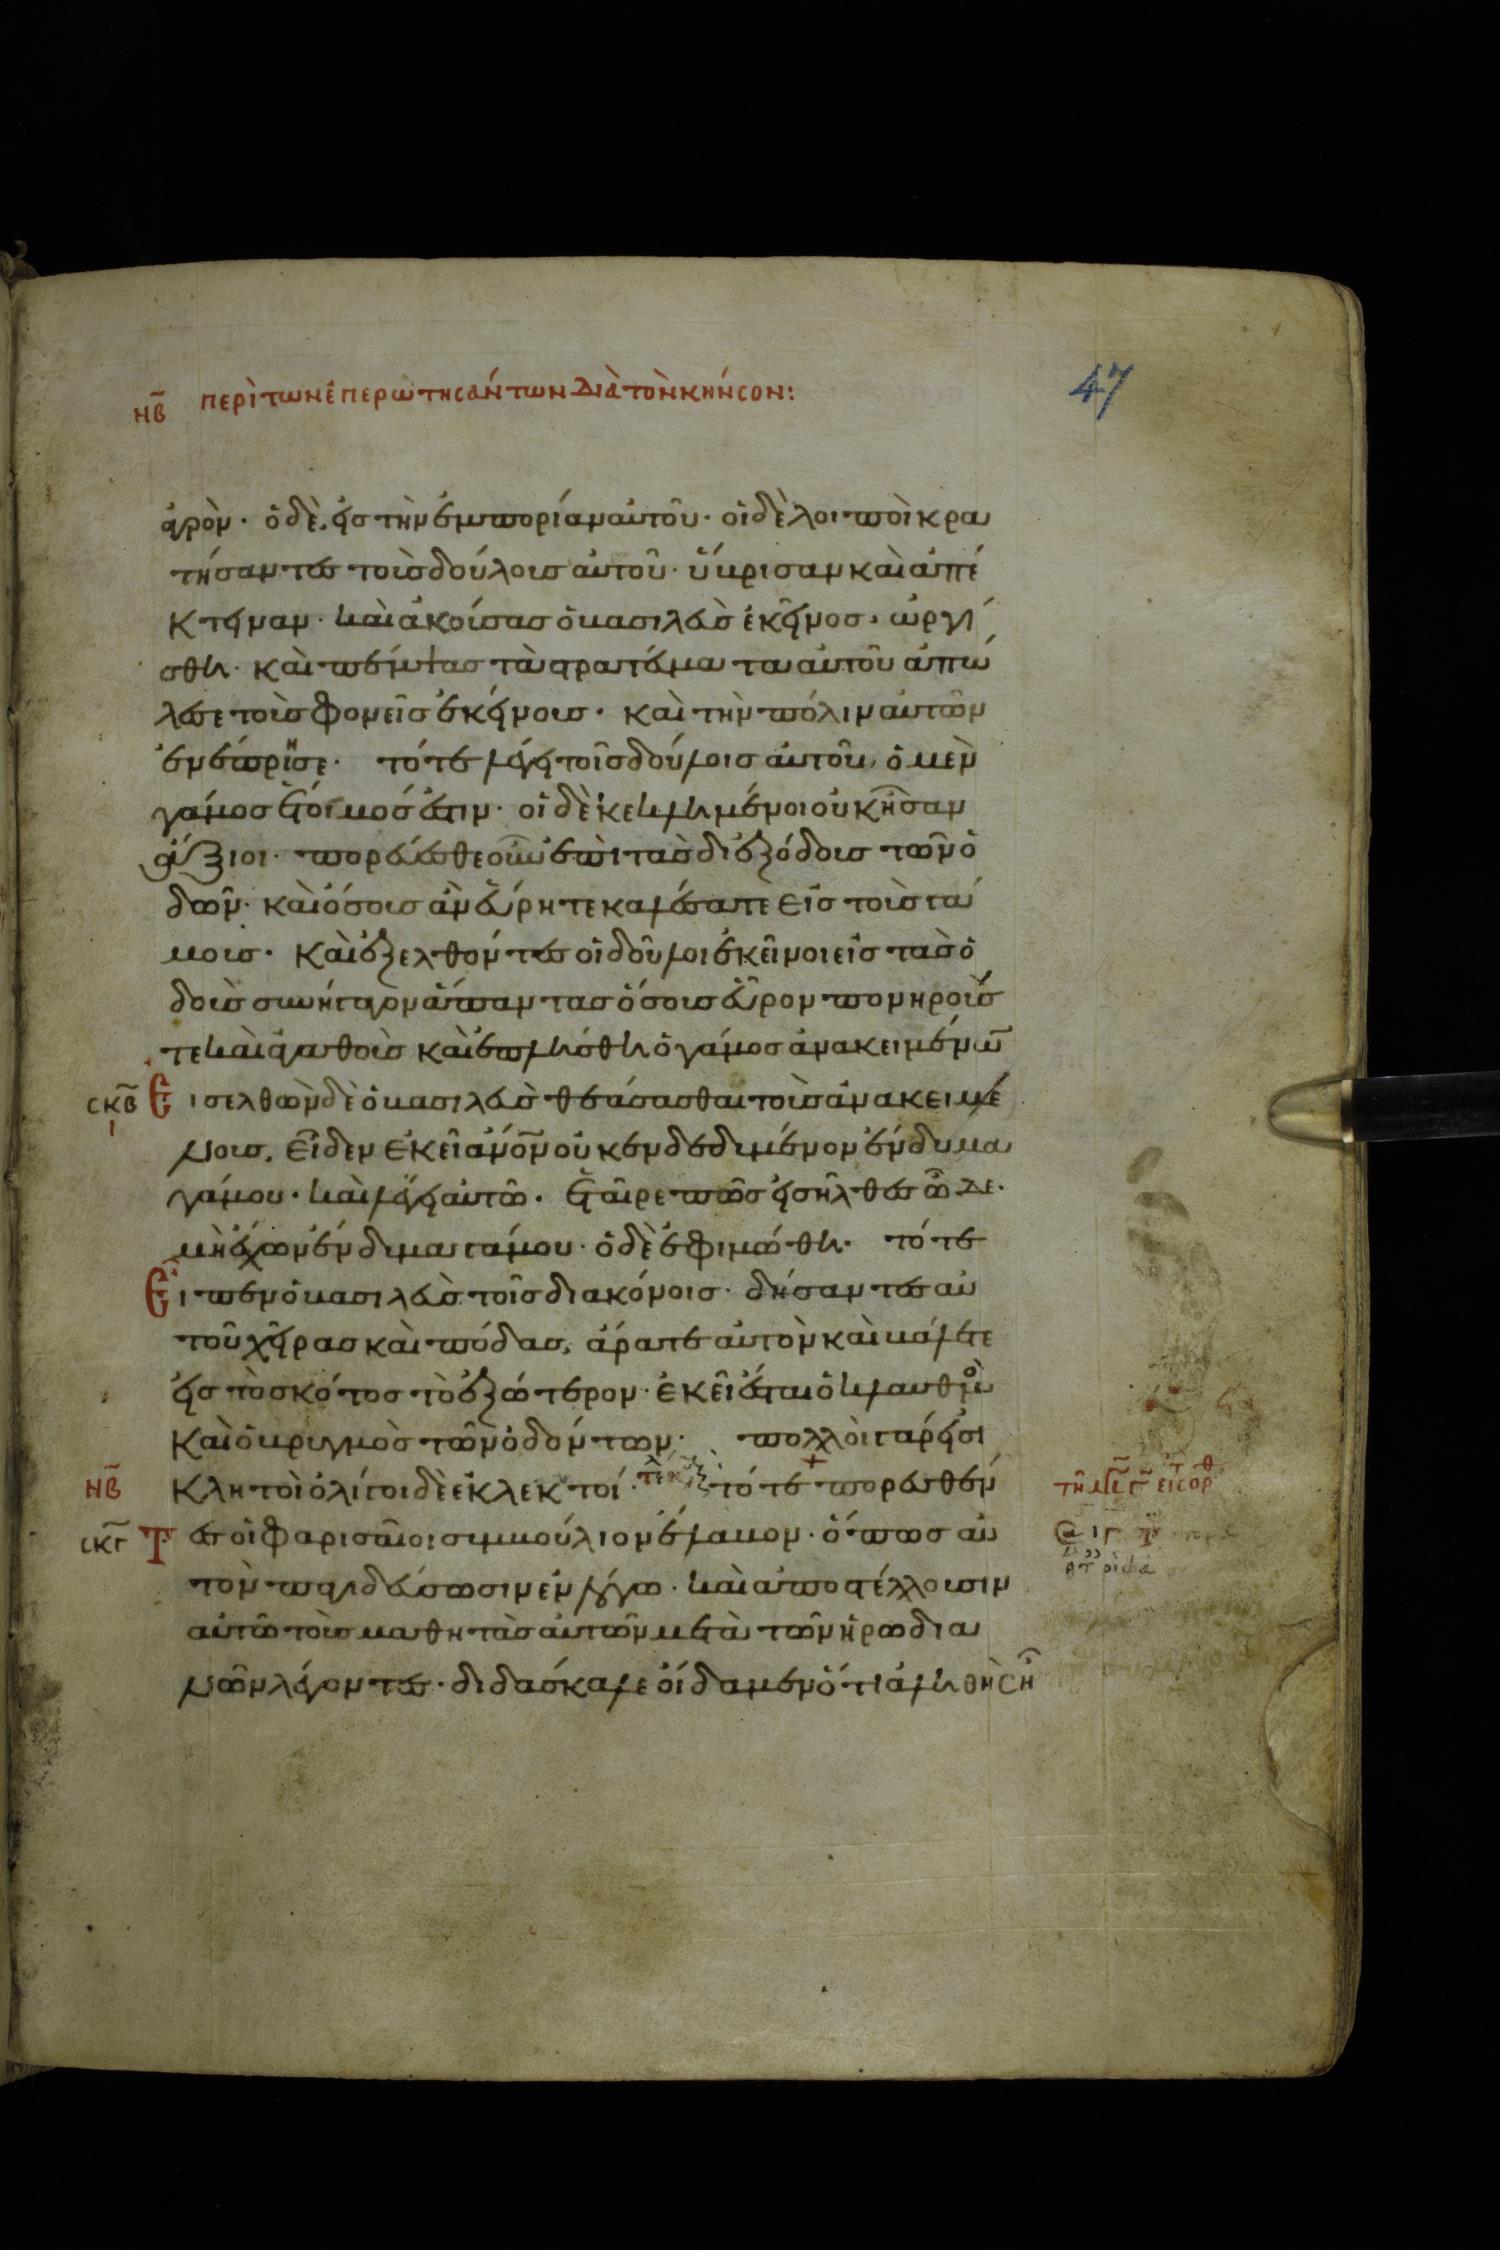 47
ΝΒ περὶ τῶν ἐπερωτησάντων διὰ τὸν κῆνσον:
ἀγρὸν· ὁ δὲ, εἰς τὴν ἐμπορίαν αὐτοῦ· οἱ δὲ λοιποὶ κρα
τήσαντες τοὺς δούλους αὐτοῦ· ὕβρισαν καὶ ἀπέ
κτειναν· καὶ ἀκούσας ὁ βασιλεὺς ἐκεῖνος· ὠργί
σθη· καὶ πέμψας τὰ στρατεύματα αὐτοῦ ἀπώ
λεσε τοὺς φονεῖς ἐκείνους· καὶ τὴν πόλιν αὐτῶν
ἐνέπρησε· τότε λέγει τοῖς δούλοις αὐτοῦ, ὁ μὲν
γάμος ἕτοιμός ἐστιν· οἱ δὲ κεκλημένοι οὐκ ἦσαν
ἄξιοι· πορεύεσθε οὖν ἐπὶ τὰς διεξόδους τῶν ὁ
δῶν· καὶ ὅσους ἂν εὕρητε καλέσατε εἰς τοὺς γά
μους· καὶ ἐξελθόντες οἱ δοῦλοι ἐκεῖνοι εἰς τὰς ὁ
δοὺς συνήγαγον ἅπαντας ὅσους εὗρον πονηρούς
τε καὶ ἀγαθοὺς καὶ ἐπλήσθη ὁ γάμος ἀνακειμένων
σκβ ι Εἰσελθὼν δὲ ὁ βασιλεὺς θεάσασθαι τοὺς ἀνακειμέ
νους, εἶδεν ἐκεῖ ἄνον οὐκ ἐνδεδυμένον ἔνδυμα
γάμου· καὶ λέγει αὐτῶ· ἑταῖρε πῶς εἰσῆλθες ὧδε·
μὴ ἔχων ἔνδυμα γάμου· ὁ δὲ ἐφιμώθη· τότε
Εἶπεν ὁ βασιλεὺς τοῖς διακόνοις· δήσαντες αὐ
τοῦ χεῖρας καὶ πόδας, ἄρατε αὐτὸν καὶ βάλετε
εἰς τὸ σκότος τὸ ἐξώτερον· ἐκεῖ ἔσται ὁ κλαυθμὸς
καὶ ὁ βρυγμὸς τῶν ὀδόντων· πολλοὶ γάρ εἰσι
ΝΒ κλητοὶ ὀλίγοι δὲ ἐκλεκτοί· τελ τότε πορευθέν
σκγ τες οἱ φαρισαῖοι συμβούλιον ἔλαβον· ὅπως αὐ
τὸν παγιδεύσωσιν ἐν λόγω· καὶ ἀποστέλλουσιν
αὐτῶ τοὺς μαθητὰς αὐτῶν μετὰ τῶν ἡρωδια
νῶν λέγοντες· διδάσκαλε οἴδαμεν ὅτι ἀληθὴς εἶ